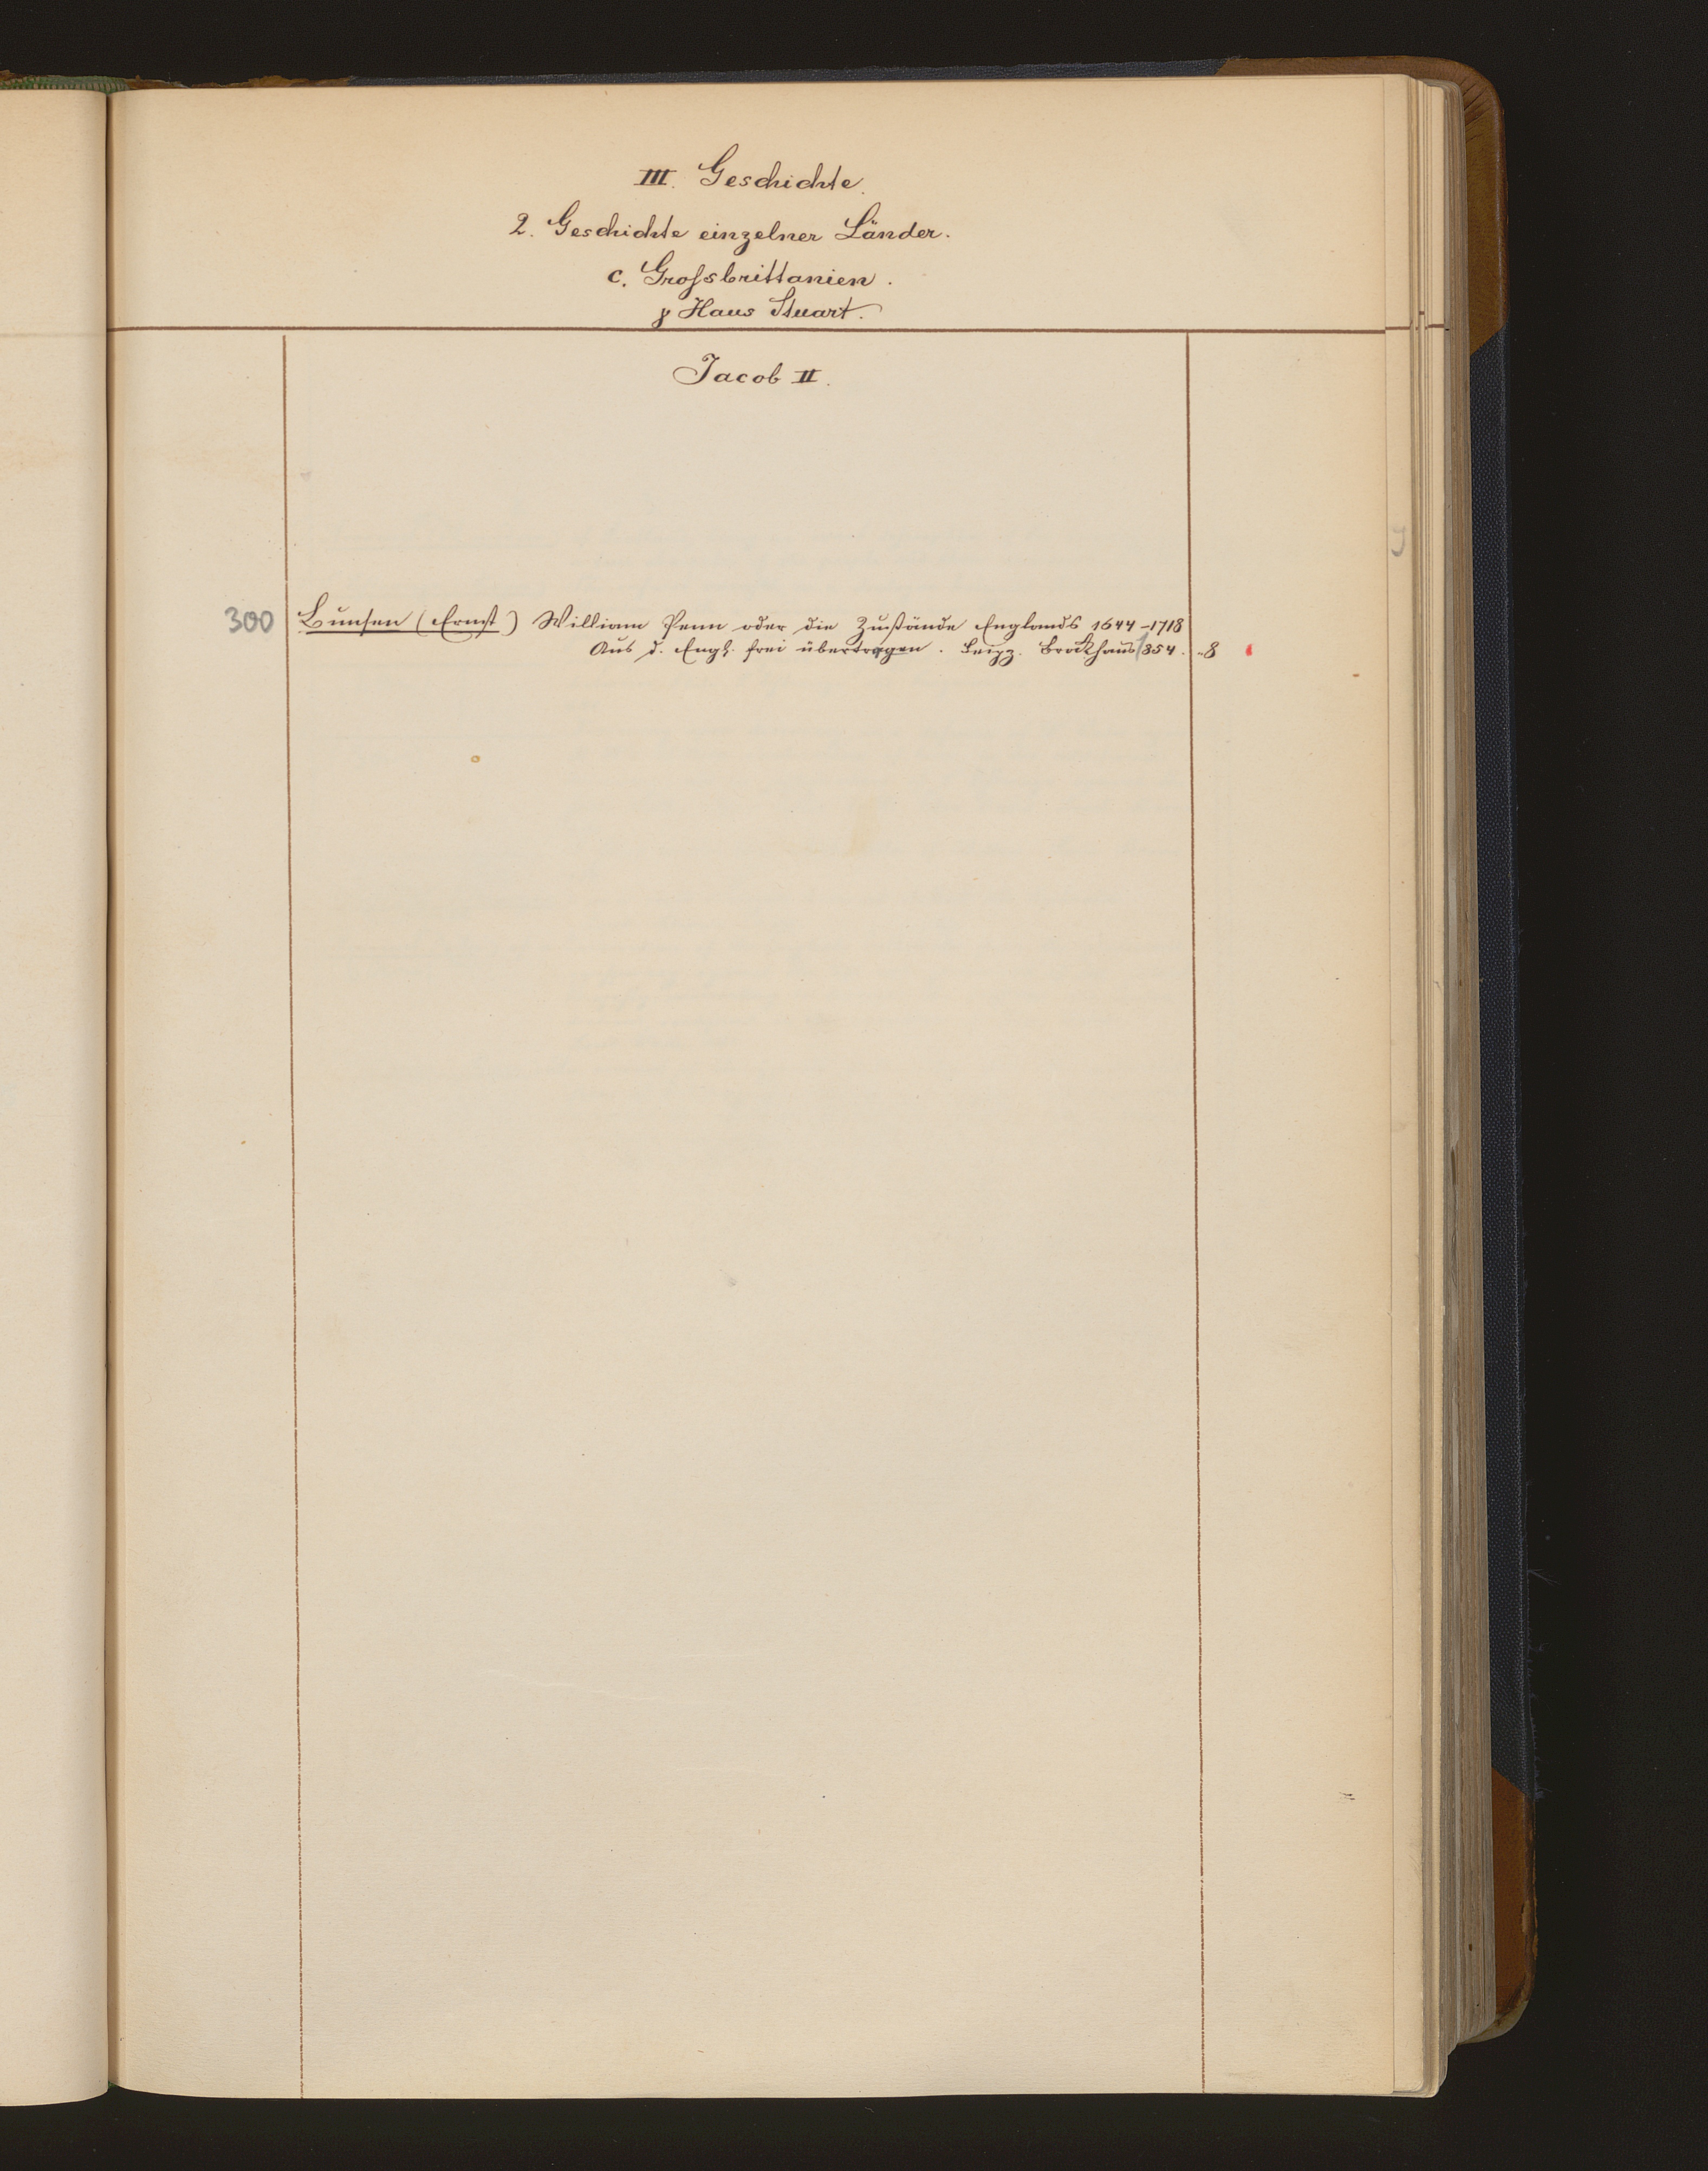 III. Geschichte.
2. Geschichte einzelner Länder.
c. Grofsbrittanien.
γ Haus Stuart.
Jacob II.
300 Bunsen (Ernst) William Penn oder die Zustände Englands 1644-1718
Aus d. Engl. frei übertragen. Leipz. Brockhaus 1854. 8